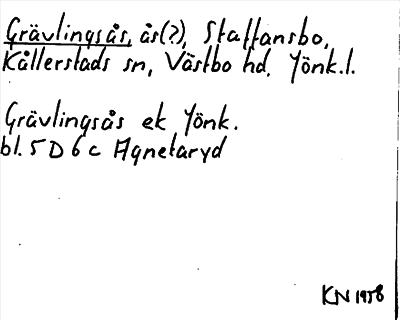 Grävlingsås, ås(?), Staffansbo,
Kållerstads sn, Västbo hd, Jönk.l.
Grävlingsås ek Jönk.
bl. 5 D 6 c Agnetaryd
KN 1958